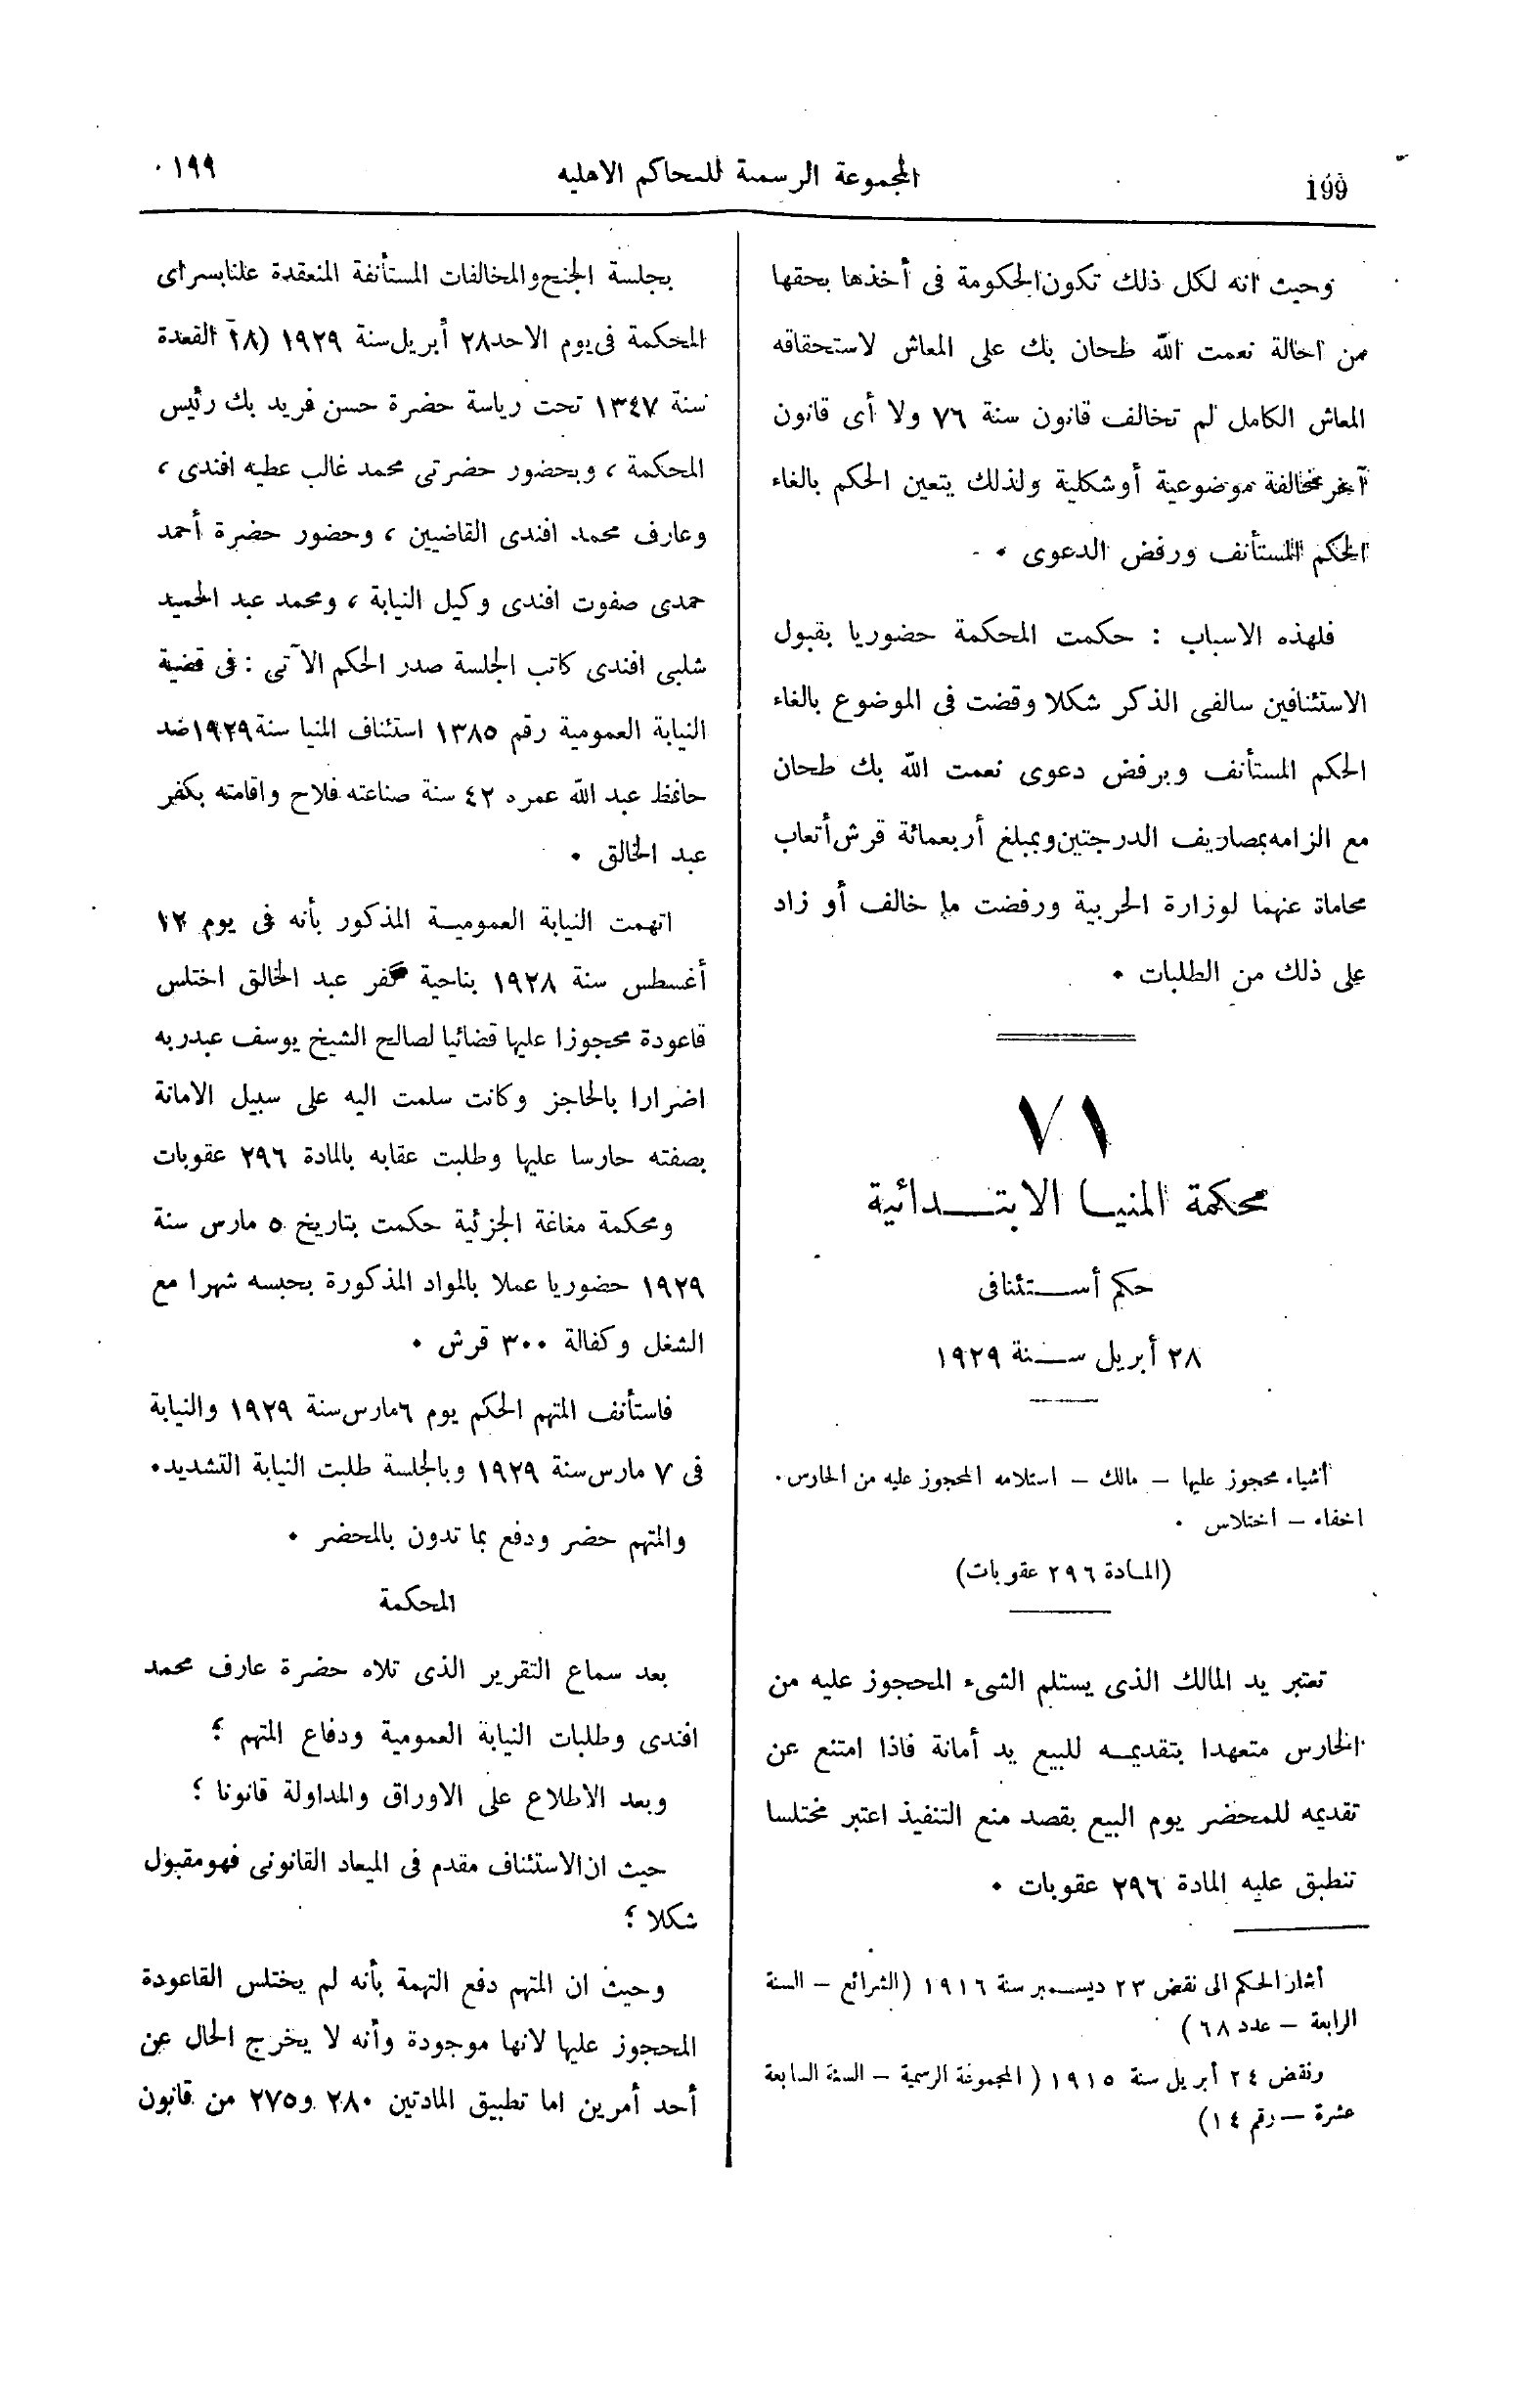 199
المجموعة الرسمية للمحاكم الاهليه
١٩٩
وحيث انه لكل ذلك تكون الحكومة فى أخذها بحقها
من احالة نعمت الله طحان بك على المعاش لاستحقاقه
المعاش الكامل لم تخالف قانون سنة ٧٦ ولا أى قانون
آخر مخالفة موضوعية أو شكلية ولذلك يتعين الحكم بالغاء
الحكم المستأنف ورفض الدعوى ٠
فلهذه الاسباب : حكمت المحكمة حضوريا بقبول
الاستئنافين سالفى الذكر شكلا وقضت فى الموضوع بالغاء
الحكم المستأنف وبرفض دعوى نعمت الله بك طحان
مع الزامه بمصاريف الدرجتين وبمبلغ أربعمائة قرش أتعاب
محاماة عنهما لوزارة الحربية ورفضت ما خالف أو زاد
على ذلك من الطلبات ٠
٧١
محكمة المنيا الابتدائية
حكم أستئنافى
٢٨ أبريل سنة ١٩٢٩
أشياء محجوز عليها – مالك – استلامه المحجوز عليه من الحارس ٠
اخفاء – اختلاس ٠
(المادة ٢٩٦ عقوبات)
تعتبر يد المالك الذى يستلم الشىء المحجوز عليه من
الحارس متعهدا بتقديمه للبيع يد أمانة فاذا امتنع عن
تقديمه للمحضر يوم البيع بقصد منع التنفيذ اعتبر مختلسا
تنطبق عليه المادة ٢٩٦ عقوبات ٠
أشار الحكم الى نقض ٢٣ ديسمبر سنة ١٩١٦ (الشرائع – السنة
الرابعة – عدد ٦٨)
ونقض ٢٤ أبريل سنة ١٩١٥ (المجموعة الرسمية – السنة السابعة
عشرة – رقم ١٤)
بجلسة الجنح والمخالفات المستأنفة المنعقدة علنا بسراى
المحكمة فى يوم الاحد ٢٨ أبريل سنة ١٩٢٩ (١٨ القعدة
سنة ١٣٤٧ تحت رياسة حضرة حسن فريد بك رئيس
المحكمة ، وبحضور حضرتى محمد غالب عطيه افندى ،
وعارف محمد افندى القاضيين ، وحضور حضرة أحمد
حمدى صفوت افندى وكيل النيابة ، ومحمد عبد الحميد
شلبى افندى كاتب الجلسة صدر الحكم الآتى : فى قضية
النيابة العمومية رقم ١٣٨٥ استئناف المنيا سنة ١٩٢٩ ضد
حافظ عبد الله عمره ٤٢ سنة صناعته فلاح واقامته بكفر
عبد الخالق ٠
اتهمت النيابة العمومية المذكور بأنه فى يوم ١٢
أغسطس سنة ١٩٢٨ بناحية كفر عبد الخالق اختلس
قاعودة محجوزا عليها قضائيا لصالح الشيخ يوسف عبدربه
اضرارا بالحاجز وكانت سلمت اليه على سبيل الامانة
بصفته حارسا عليها وطلبت عقابه بالمادة ٢٩٦ عقوبات
ومحكمة مغاغة الجزئية حكمت بتاريخ ٥ مارس سنة
١٩٢٩ حضوريا عملا بالمواد المذكورة بحبسه شهرا مع
الشغل وكفالة ٣٠٠ قرش ٠
فاستأنف المتهم الحكم يوم ٦ مارس سنة ١٩٢٩ والنيابة
فى ٧ مارس سنة ١٩٢٩ وبالجلسة طلبت النيابة التشديد ٠
والمتهم حضر ودفع بما تدون بالمحضر ٠
المحكمة
بعد سماع التقرير الذى تلاه حضرة عارف محمد
افندى وطلبات النيابة العمومية ودفاع المتهم ؛
وبعد الاطلاع على الاوراق والمداولة قانونا ؛
حيث ان الاستئناف مقدم فى الميعاد القانونى فهو مقبول
شكلا ؛
وحيث ان المتهم دفع التهمة بأنه لم يختلس القاعودة
المحجوز عليها لانها موجودة وأنه لا يخرج الحال عن
أحد أمرين اما تطبيق المادتين ٢٨٠ و٢٧٥ من قانون